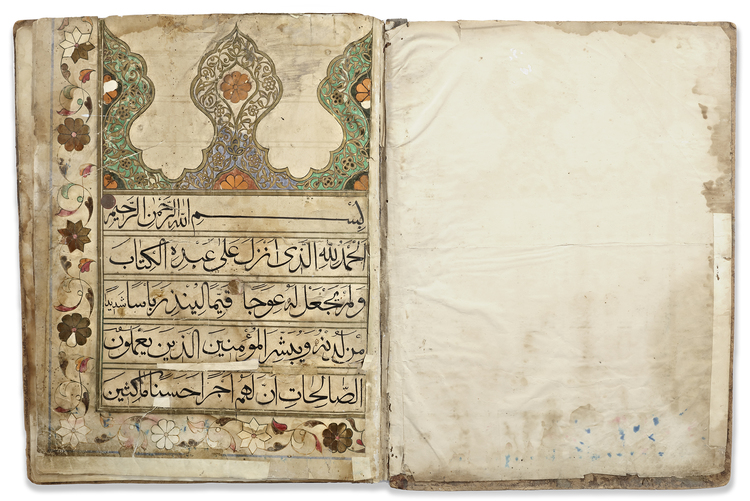 بسم الله الرحمن الرحيم
الحمد لله الذى انزل على عبده الكتاب
ولم يجعل له عوجا قيما لينذر باسا شديدا
من لدنه ويبشر المؤمنين الذين يعملون
الصالحات ان لهم اجرا حسنا ماكثين